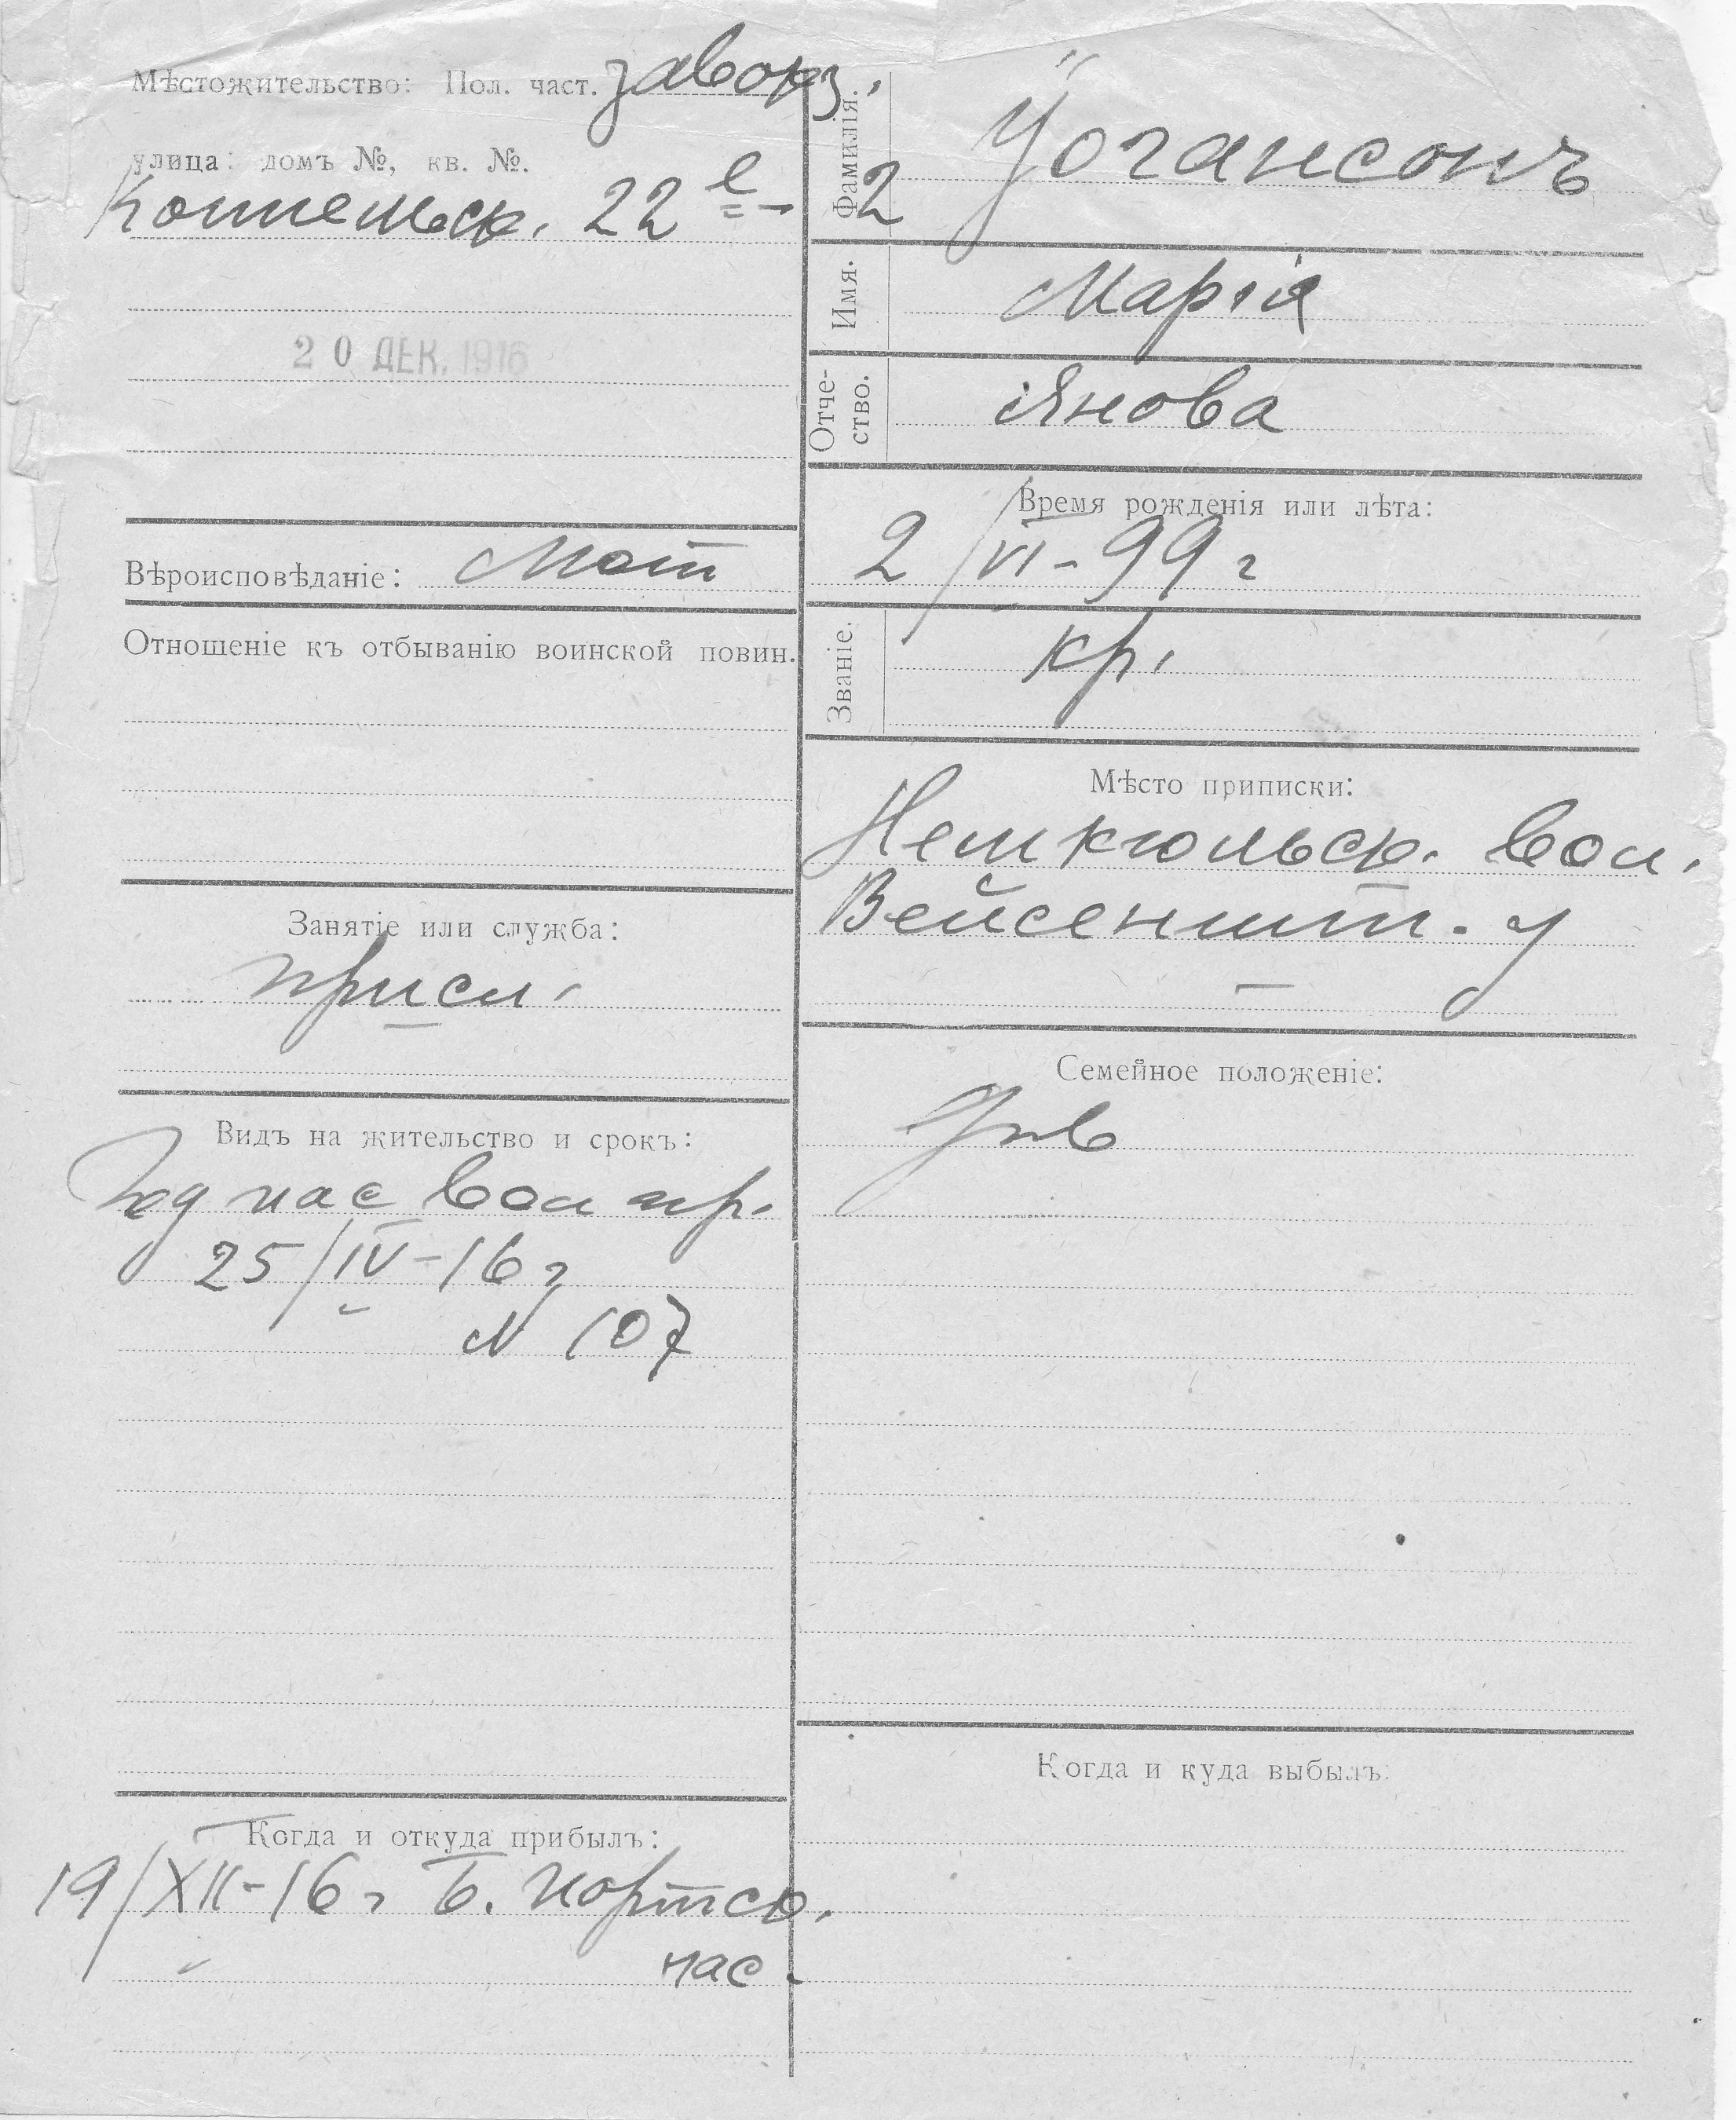 Мѣстожительство: Пол. част. завокз.
улица: домъ №, кв. №.
Коппельск. 22 е - 2
20 ДЕК. 1916
Вѣроисповѣданіе: Лют
Отношеніе къ отбыванію воинской повин.
Занятіе или служба:
присл.
Видъ на жительство и срокъ:
Год пас вол пр.
25/IV-16 г
N 107
Когда и откуда прибылъ:
19/XII-16 г Б. Юрьевск.
пас.
Фамилія. Іогансонъ
Имя. Марія
Отче-
ство. Янова
Время рожденія или лѣта:
2/VI-99 г
Званіе. кр.
Мѣсто приписки:
Немкюльск. вол.
Вейсеншт. у
Семейное положеніе:
Когда и куда выбылъ: